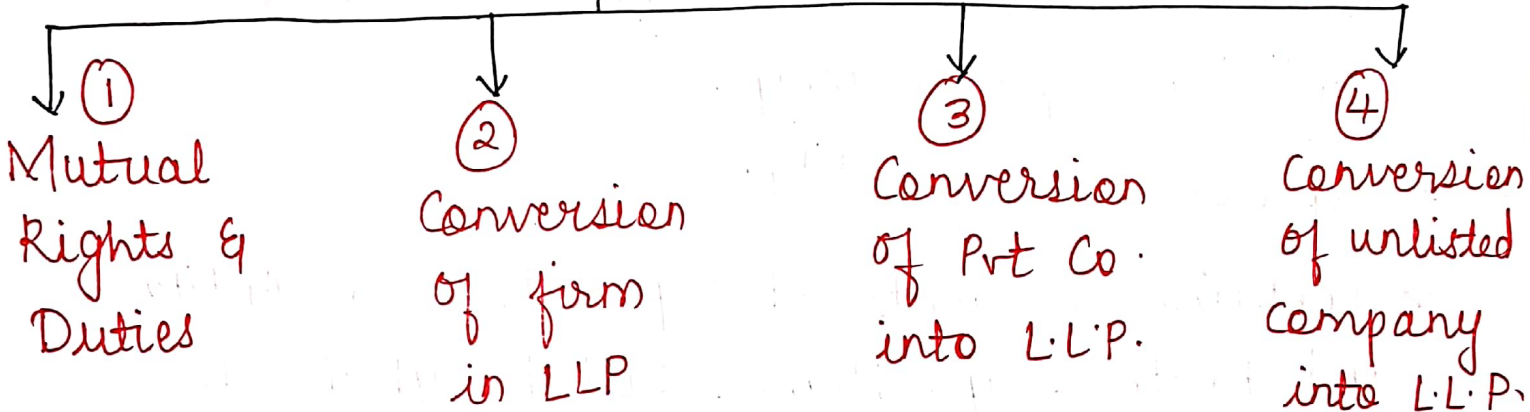 1
Mutual
Rights &
Duties
2
Conversion
of firm
in LLP
3
Conversion
of Pvt Co.
into L.L.P.
4
Conversion
of unlisted
company
into L.L.P.